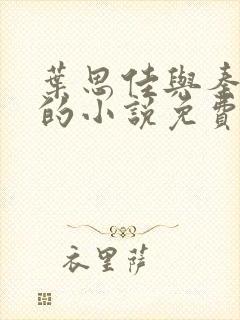 葉思佳與秦
的小說免費
衣里薩